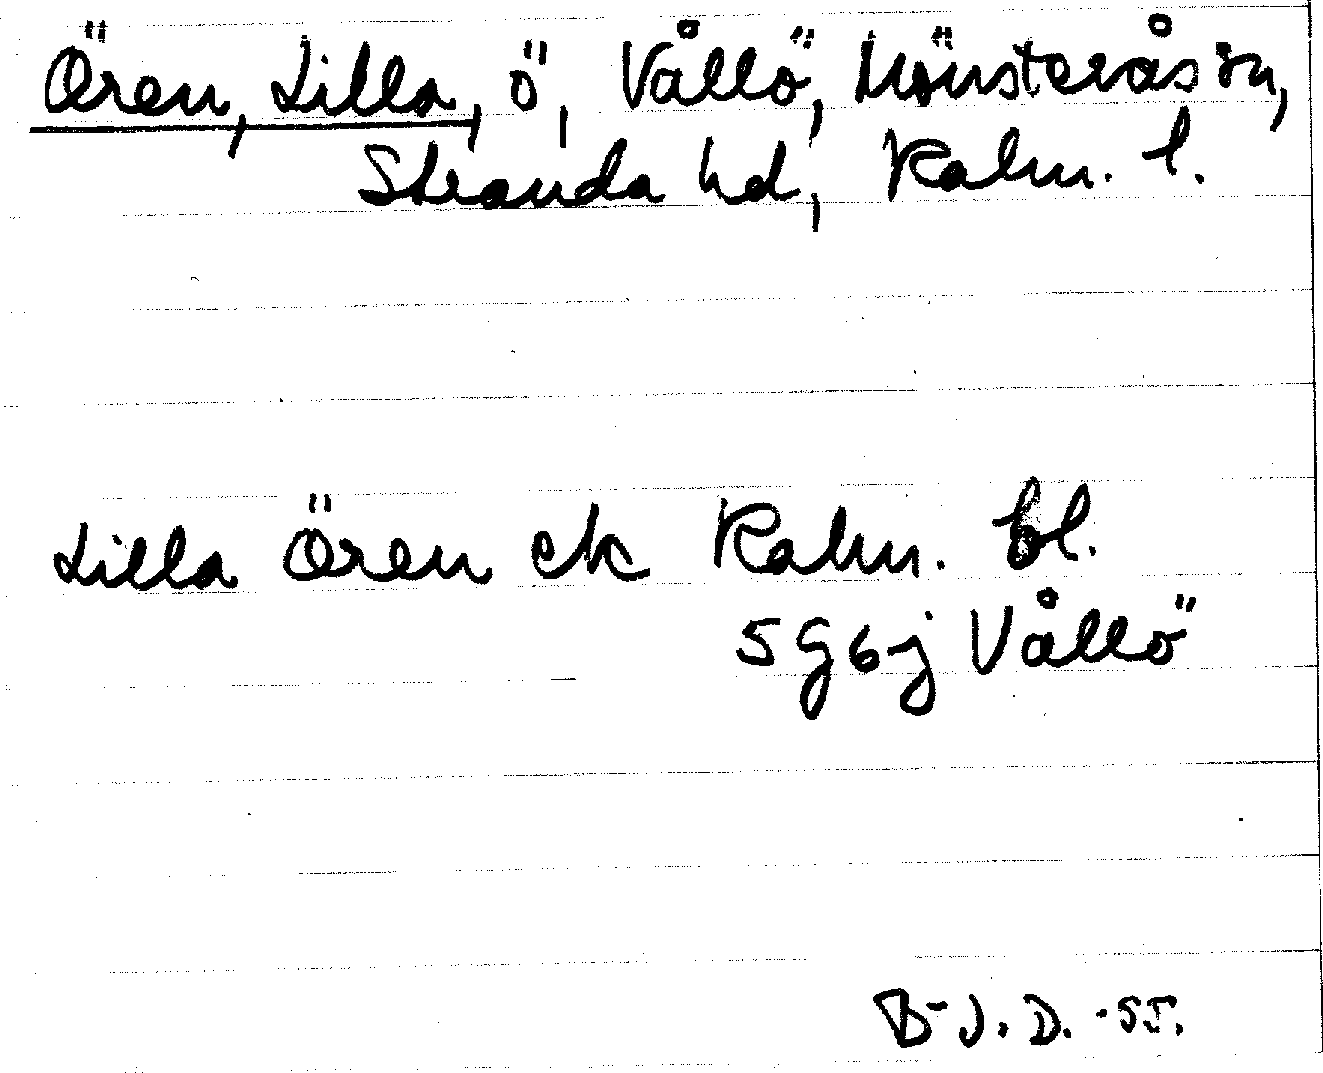 Ören, Lilla, ö, Vållö, Mönsterås sn,
Stranda hd, Kalm. l.
Lilla Ören ek Kalm. bl.
5 G 6 j Vållö
B-J. D. -55.